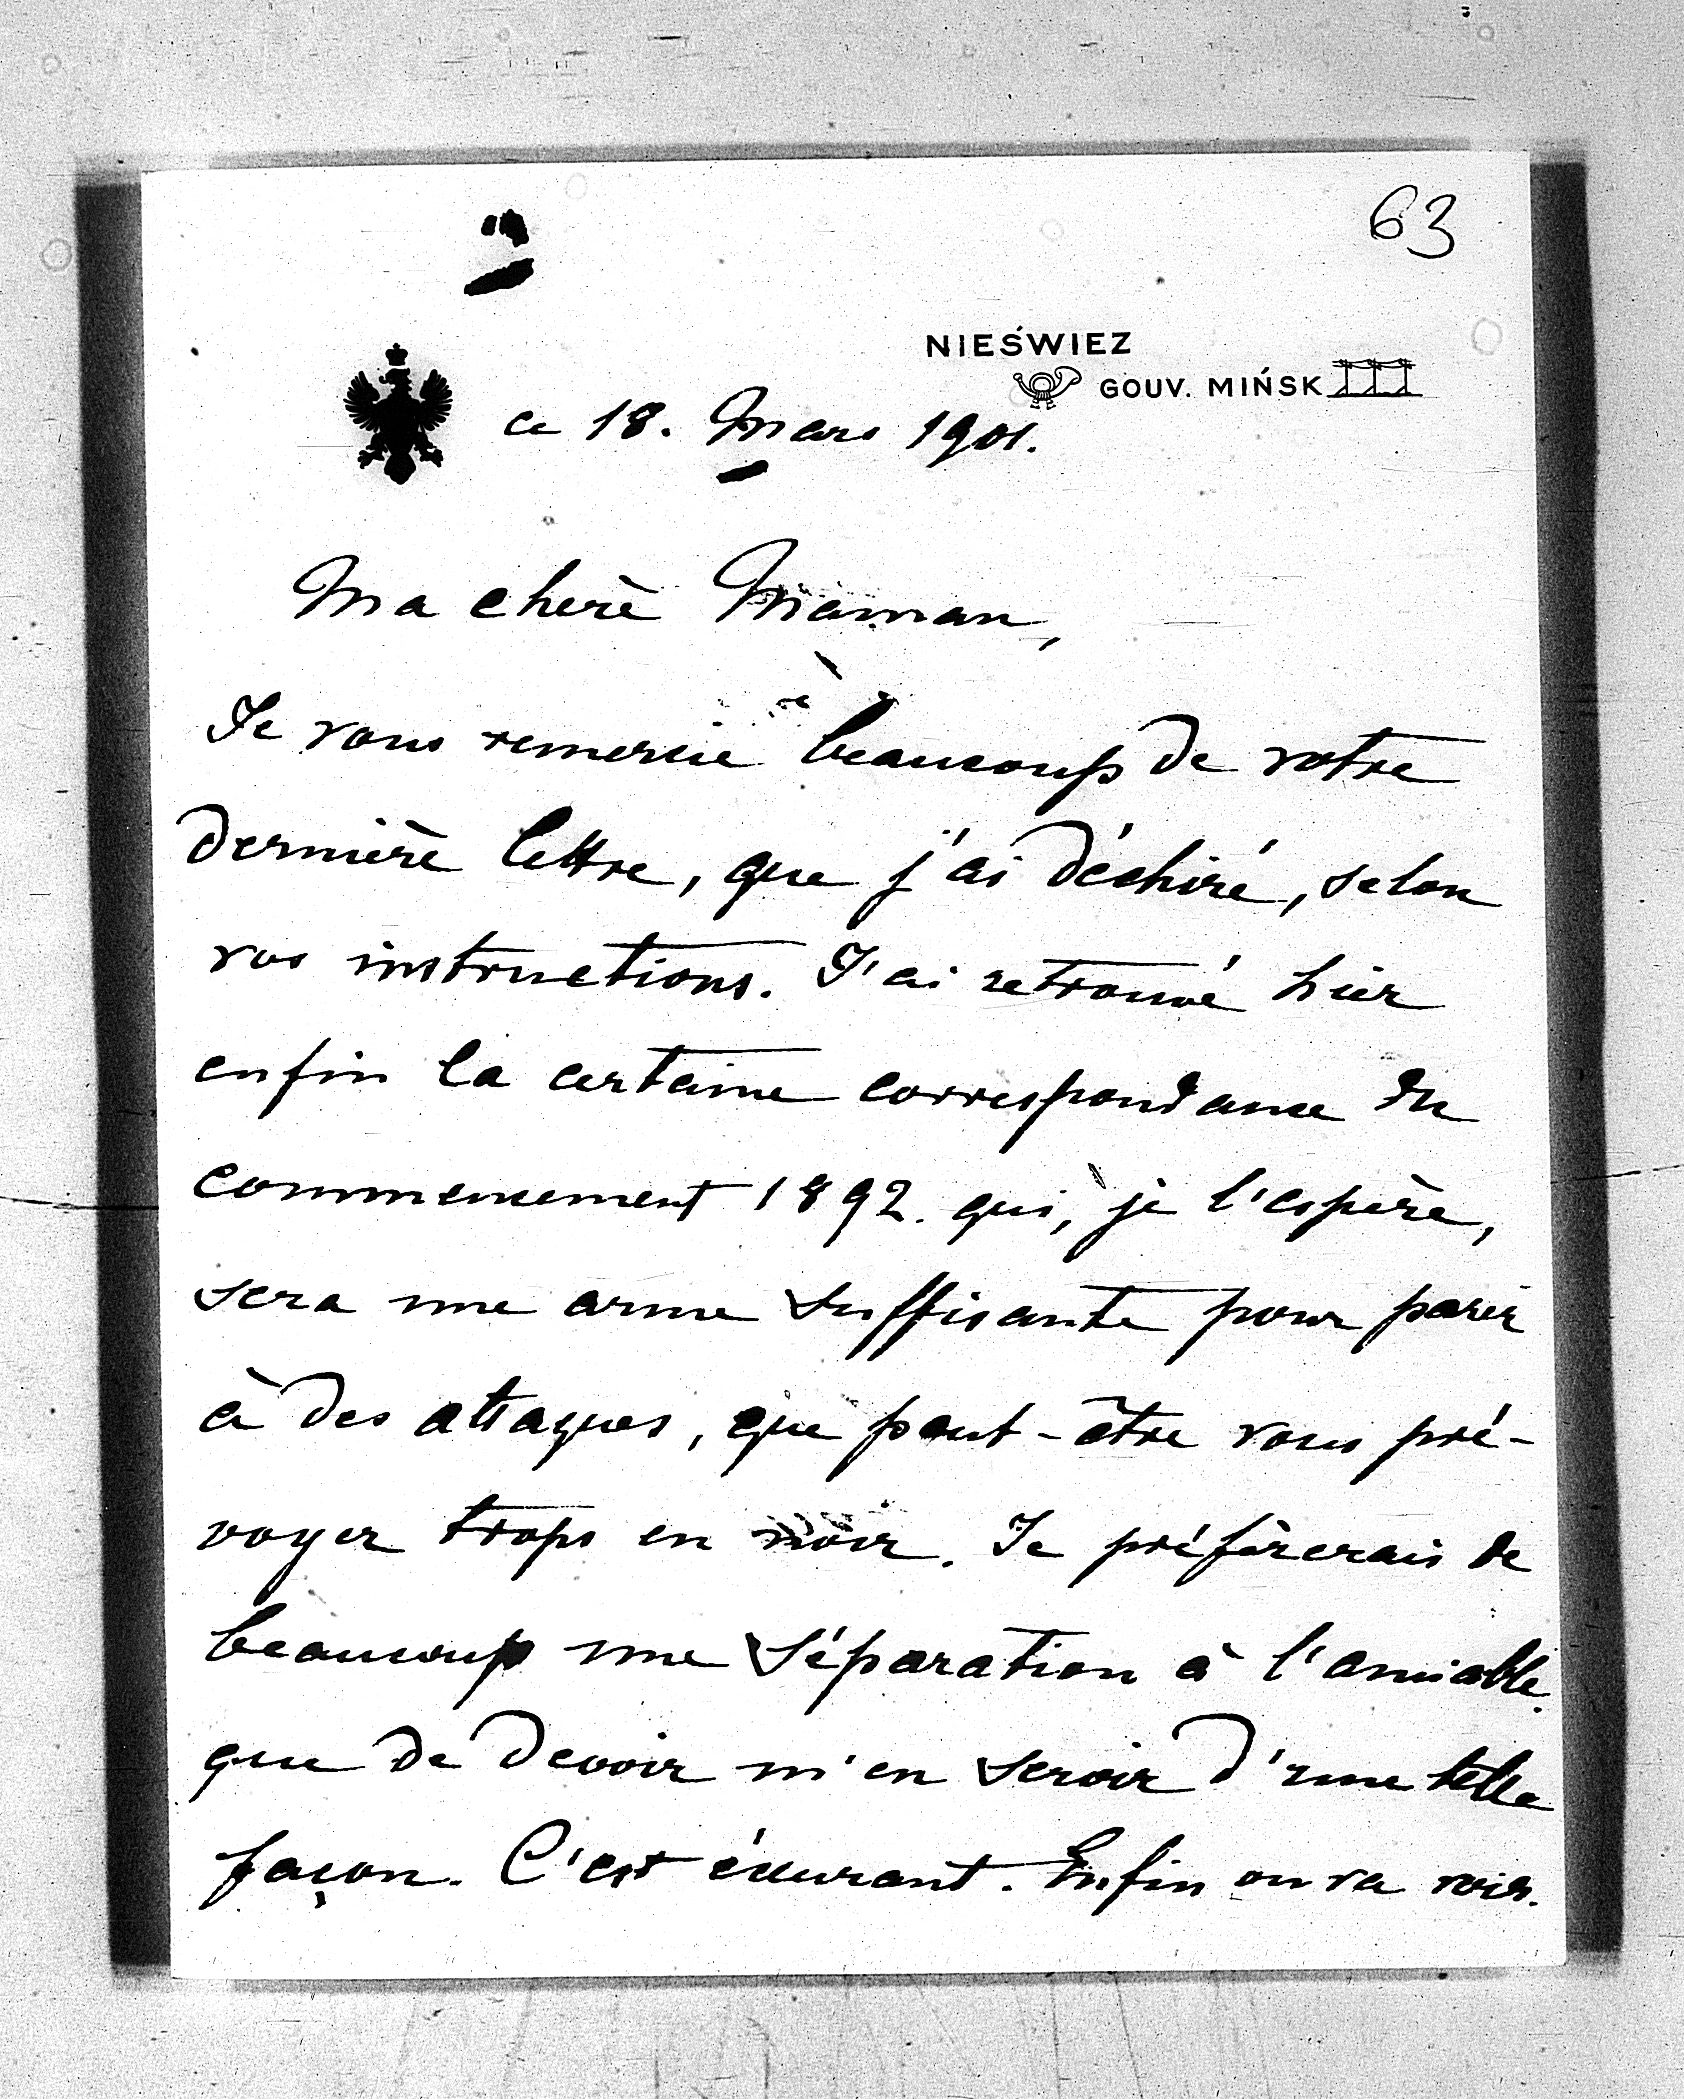 63
NIEŚWIEZ
GOUV. MIŃSK
ce 18. Mars 1901.
Ma chère Maman,
Je vous remercie beaucoup de votre
dernière lettre, que j'ai déchiré, selon
vos instructions. J'ai retrouvé hier
enfin la certaine correspondance du
commencement 1892. qui, je l'espère,
sera une arme suffisante pour parer
à des attaques, que peut-être vous pré-
voyer trops en noir. Je préfèrerais de
beaucoup une séparation à l'amiable
que de devoir m'en servir d'une telle
façon. C'est écœurant. Enfin on va voir.